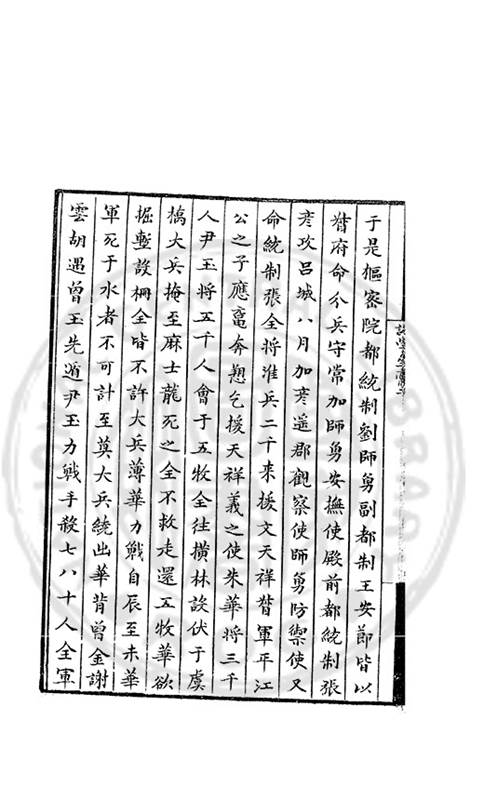 于是樞密院都統制劉師勇副都制王安節皆以
督府命分兵守常加師勇安撫使殿前都統制張
彦攻吕城八月加彦遥郡觀察使師勇防禦使又
命統制張全將淮兵二千來援文天祥督軍平江
公之子應鼋奔愬乞援天祥義之使朱華將三千
人尹玉將五千人會于五牧全往横林設伏于虞
橋大兵掩至麻士龍死之全不救走還五牧華欲
掘塹設柵全皆不許大兵薄華力戰自辰至未華
軍死于水者不可計至莫大兵繞出華背曾金謝
雲胡遇曾玉先遁尹玉力戰手殺七八十人全軍